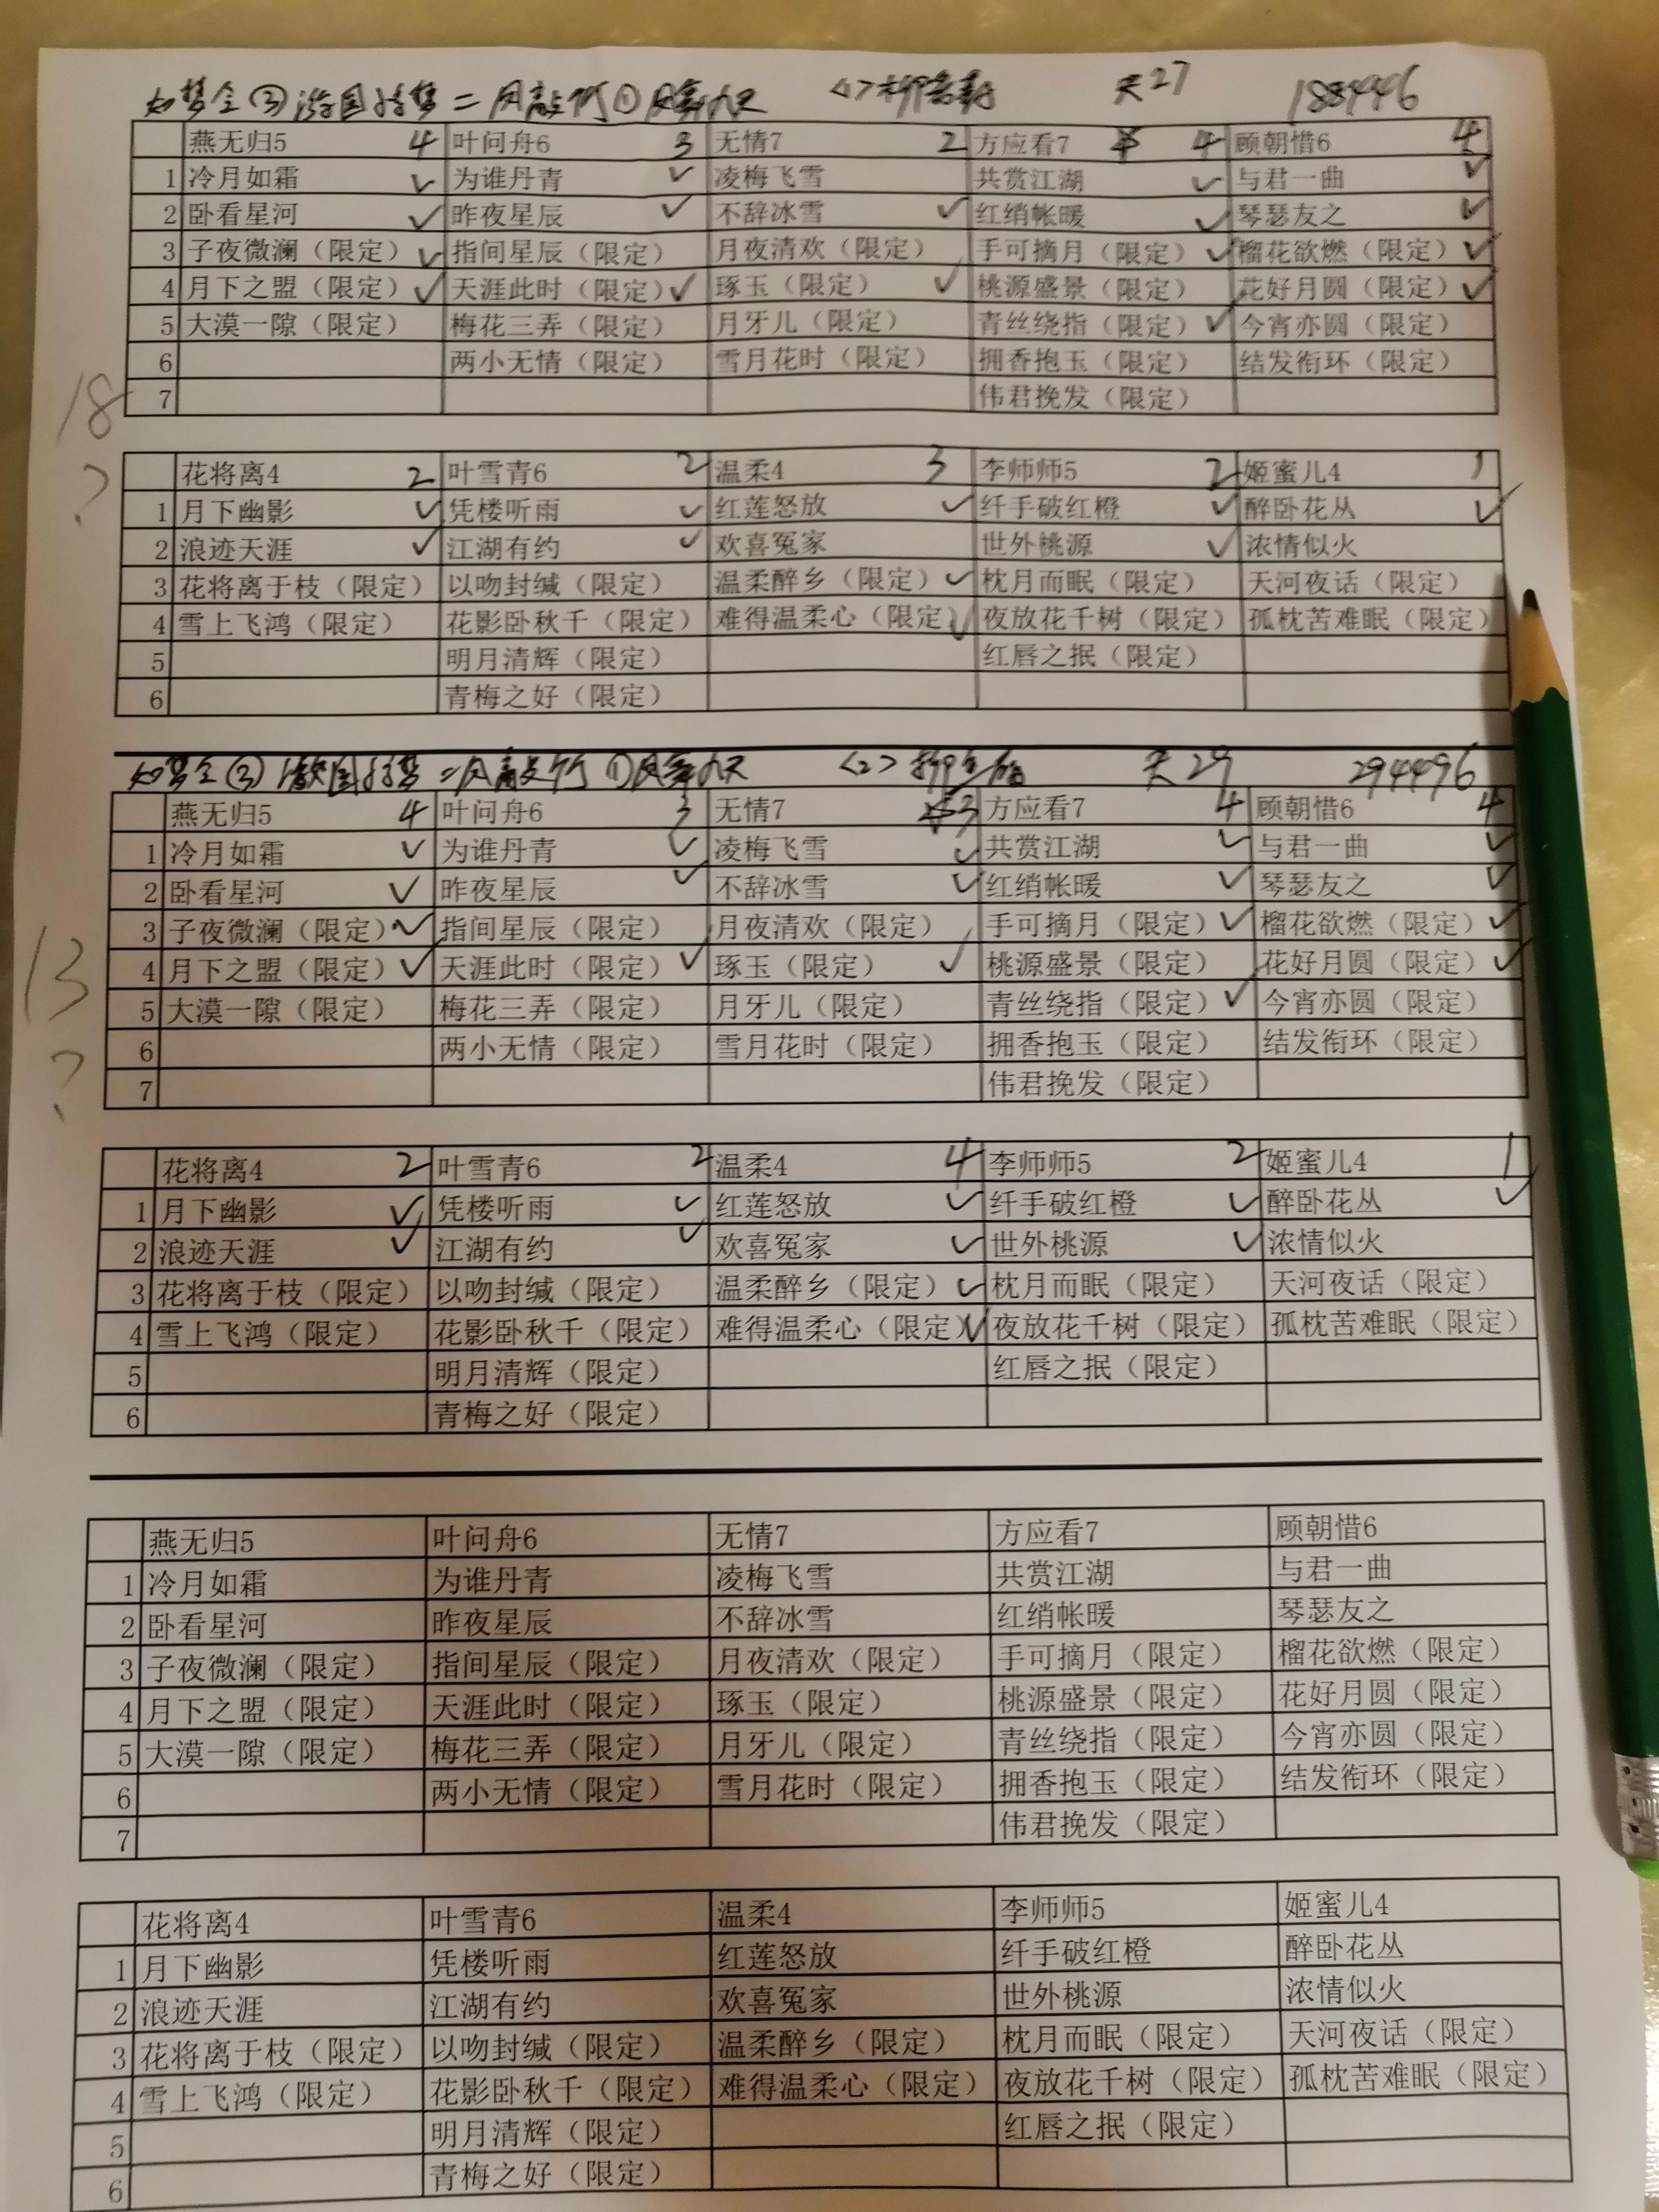 如梦令③游园惊梦 二 风敲竹① 风舞九天 <1> 天27 188446
燕无归5 4 叶问舟6 3 无情7 2 方应看7 4 顾朝惜6 4
1 冷月如霜 ✓ 为谁丹青 ✓ 凌梅飞雪 共赏江湖 ✓ 与君一曲 ✓
2 卧看星河 ✓ 昨夜星辰 ✓ 不辞冰雪 ✓ 红绡帐暖 ✓ 琴瑟友之 ✓
3 子夜微澜（限定） ✓ 指间星辰（限定） 月夜清欢（限定） 手可摘月（限定） ✓ 榴花欲燃（限定） ✓
4 月下之盟（限定） ✓ 天涯此时（限定） ✓ 琢玉（限定） ✓ 桃源盛景（限定） 花好月圆（限定） ✓
5 大漠一隙（限定） 梅花三弄（限定） 月牙儿（限定） 青丝绕指（限定） ✓ 今宵亦圆（限定）
6 两小无情（限定） 雪月花时（限定） 拥香抱玉（限定） 结发衔环（限定）
18
7 伟君挽发（限定）
花将离4 2 叶雪青6 2 温柔4 3 李师师5 2 姬蜜儿4 1
?
1 月下幽影 ✓ 凭楼听雨 ✓ 红莲怒放 ✓ 纤手破红橙 ✓ 醉卧花丛 ✓
2 浪迹天涯 ✓ 江湖有约 ✓ 欢喜冤家 世外桃源 ✓ 浓情似火
3 花将离于枝（限定） 以吻封缄（限定） 温柔醉乡（限定） ✓ 枕月而眠（限定） 天河夜话（限定）
4 雪上飞鸿（限定） 花影卧秋千（限定） 难得温柔心（限定 ✓ 夜放花千树（限定） 孤枕苦难眠（限定）
5 明月清辉（限定） 红唇之抿（限定）
6 青梅之好（限定）
如梦令③游园惊梦 二 风敲竹 ① 风舞九天 <2> 天29 294496
燕无归5 4 叶问舟6 3 无情7 3 方应看7 4 顾朝惜6 4
1 冷月如霜 ✓ 为谁丹青 ✓ 凌梅飞雪 ✓ 共赏江湖 ✓ 与君一曲 ✓
2 卧看星河 ✓ 昨夜星辰 ✓ 不辞冰雪 ✓ 红绡帐暖 ✓ 琴瑟友之 ✓
3 子夜微澜（限定） ✓ 指间星辰（限定） 月夜清欢（限定） 手可摘月（限定） ✓ 榴花欲燃（限定） ✓
13
4 月下之盟（限定） ✓ 天涯此时（限定） ✓ 琢玉（限定） ✓ 桃源盛景（限定） 花好月圆（限定） ✓
5 大漠一隙（限定） 梅花三弄（限定） 月牙儿（限定） 青丝绕指（限定） ✓ 今宵亦圆（限定）
6 两小无情（限定） 雪月花时（限定） 拥香抱玉（限定） 结发衔环（限定）
?
7 伟君挽发（限定）
花将离4 2 叶雪青6 2 温柔4 4 李师师5 2 姬蜜儿4 1
1 月下幽影 ✓ 凭楼听雨 ✓ 红莲怒放 ✓ 纤手破红橙 ✓ 醉卧花丛 ✓
2 浪迹天涯 ✓ 江湖有约 ✓ 欢喜冤家 ✓ 世外桃源 ✓ 浓情似火
3 花将离于枝（限定） 以吻封缄（限定） 温柔醉乡（限定） ✓ 枕月而眠（限定） 天河夜话（限定）
4 雪上飞鸿（限定） 花影卧秋千（限定） 难得温柔心（限定） ✓ 夜放花千树（限定） 孤枕苦难眠（限定）
5 明月清辉（限定） 红唇之抿（限定）
6 青梅之好（限定）
燕无归5 叶问舟6 无情7 方应看7 顾朝惜6
1 冷月如霜 为谁丹青 凌梅飞雪 共赏江湖 与君一曲
2 卧看星河 昨夜星辰 不辞冰雪 红绡帐暖 琴瑟友之
3 子夜微澜（限定） 指间星辰（限定） 月夜清欢（限定） 手可摘月（限定） 榴花欲燃（限定）
4 月下之盟（限定） 天涯此时（限定） 琢玉（限定） 桃源盛景（限定） 花好月圆（限定）
5 大漠一隙（限定） 梅花三弄（限定） 月牙儿（限定） 青丝绕指（限定） 今宵亦圆（限定）
6 两小无情（限定） 雪月花时（限定） 拥香抱玉（限定） 结发衔环（限定）
7 伟君挽发（限定）
花将离4 叶雪青6 温柔4 李师师5 姬蜜儿4
1 月下幽影 凭楼听雨 红莲怒放 纤手破红橙 醉卧花丛
2 浪迹天涯 江湖有约 欢喜冤家 世外桃源 浓情似火
3 花将离于枝（限定） 以吻封缄（限定） 温柔醉乡（限定） 枕月而眠（限定） 天河夜话（限定）
4 雪上飞鸿（限定） 花影卧秋千（限定） 难得温柔心（限定） 夜放花千树（限定） 孤枕苦难眠（限定）
5 明月清辉（限定） 红唇之抿（限定）
6 青梅之好（限定）